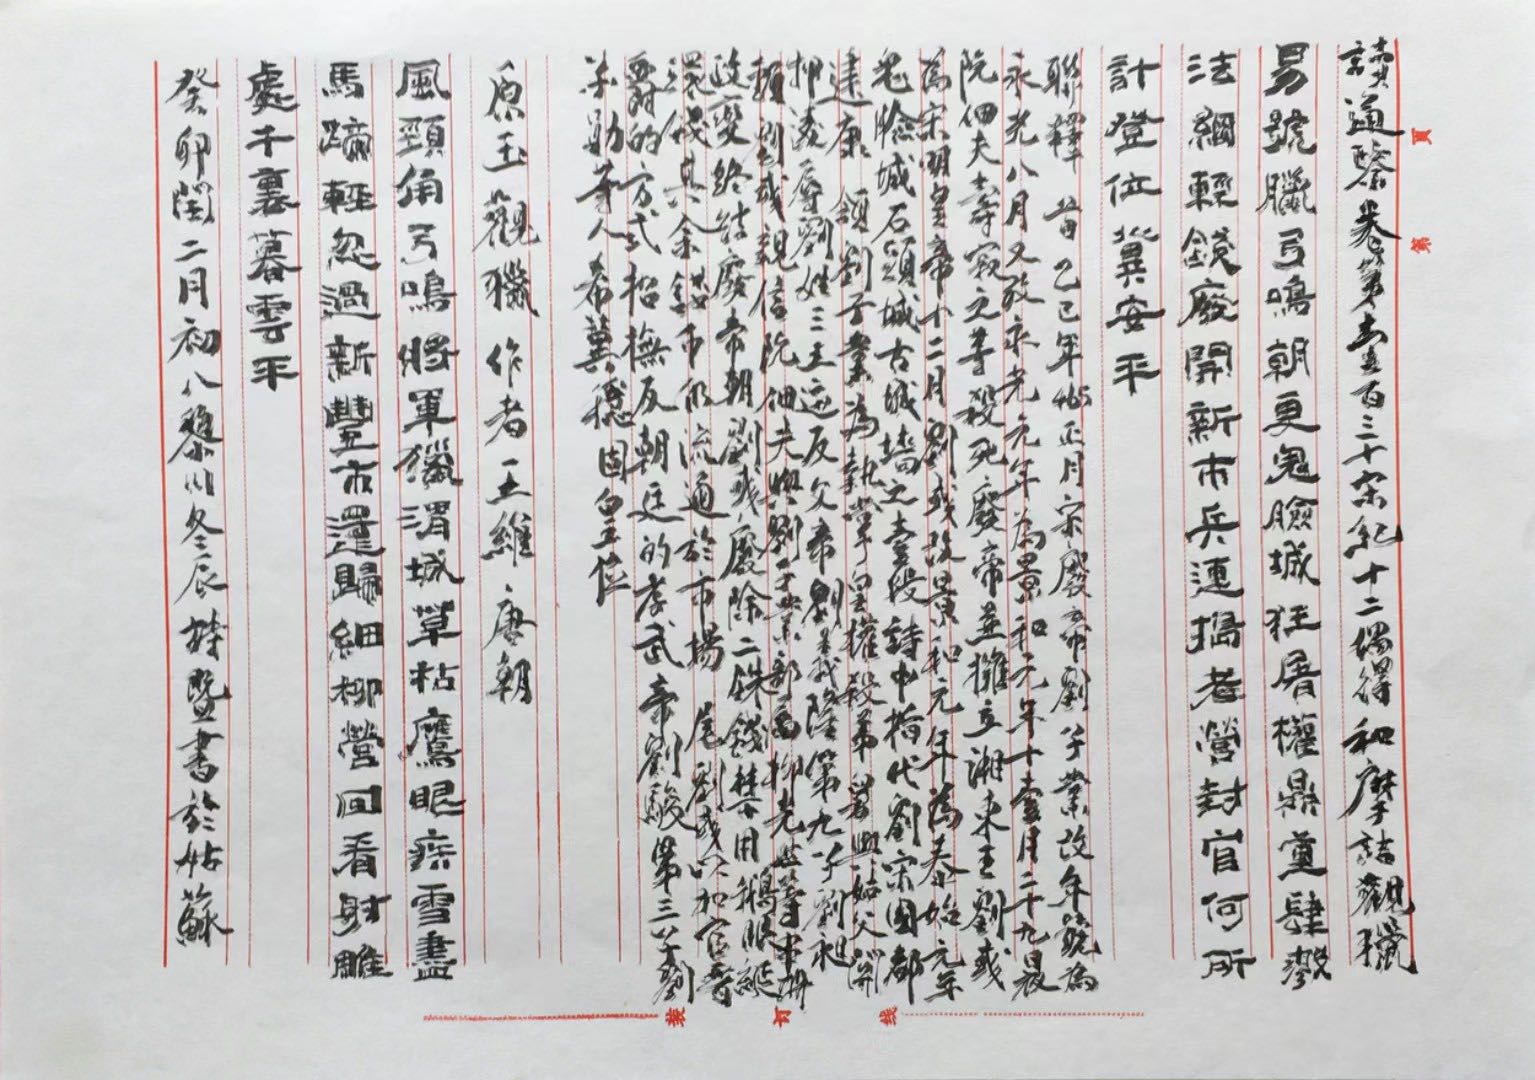 讀通鑒卷第壹百三十宋紀十二偶得和摩詰觀獵
易號臘弓鳴朝更鬼臉城狂屠權鼎董肆
法網輕錢廢開新市兵連搗老營封官何所
計登位冀安平
聯釋 首乙巳年 正月宋廢帝劉子業改年號為
永光八月又改永光元年為景和元年十壹月二十九晨
阮佃夫壽寂之等殺死廢帝並擁立湘東王劉彧
為宋明皇帝十二月劉彧改景和元年為泰始元年
鬼臉城石頭城古城墻之壹段詩中指代劉宋國都
建康 頷劉子業為執掌皇權殺弟 與姑父 開
柳 凌辱劉姓三王逼反父帝劉義隆第九子劉昶
頸劉彧親信阮佃夫與劉子業部 柳光世等
政變終結廢帝朝劉彧廢除二銖錢禁用鵝眼綖
環錢其余錢幣仍流通於市場 尾劉彧以加官晉
爵的方式招撫反朝廷的孝武帝劉駿第三子劉
子勛等人希冀穩固皇位
原玉觀獵 作者王維 唐朝
風頸角弓鳴將軍獵渭城草枯鷹眼疾雪盡
馬蹄輕忽過新豐市還歸細柳營回看射雕
處千裏暮雲平
癸卯閏二月初八黎川冬辰詩暨書於姑蘇
頁
第
裝 訂 线